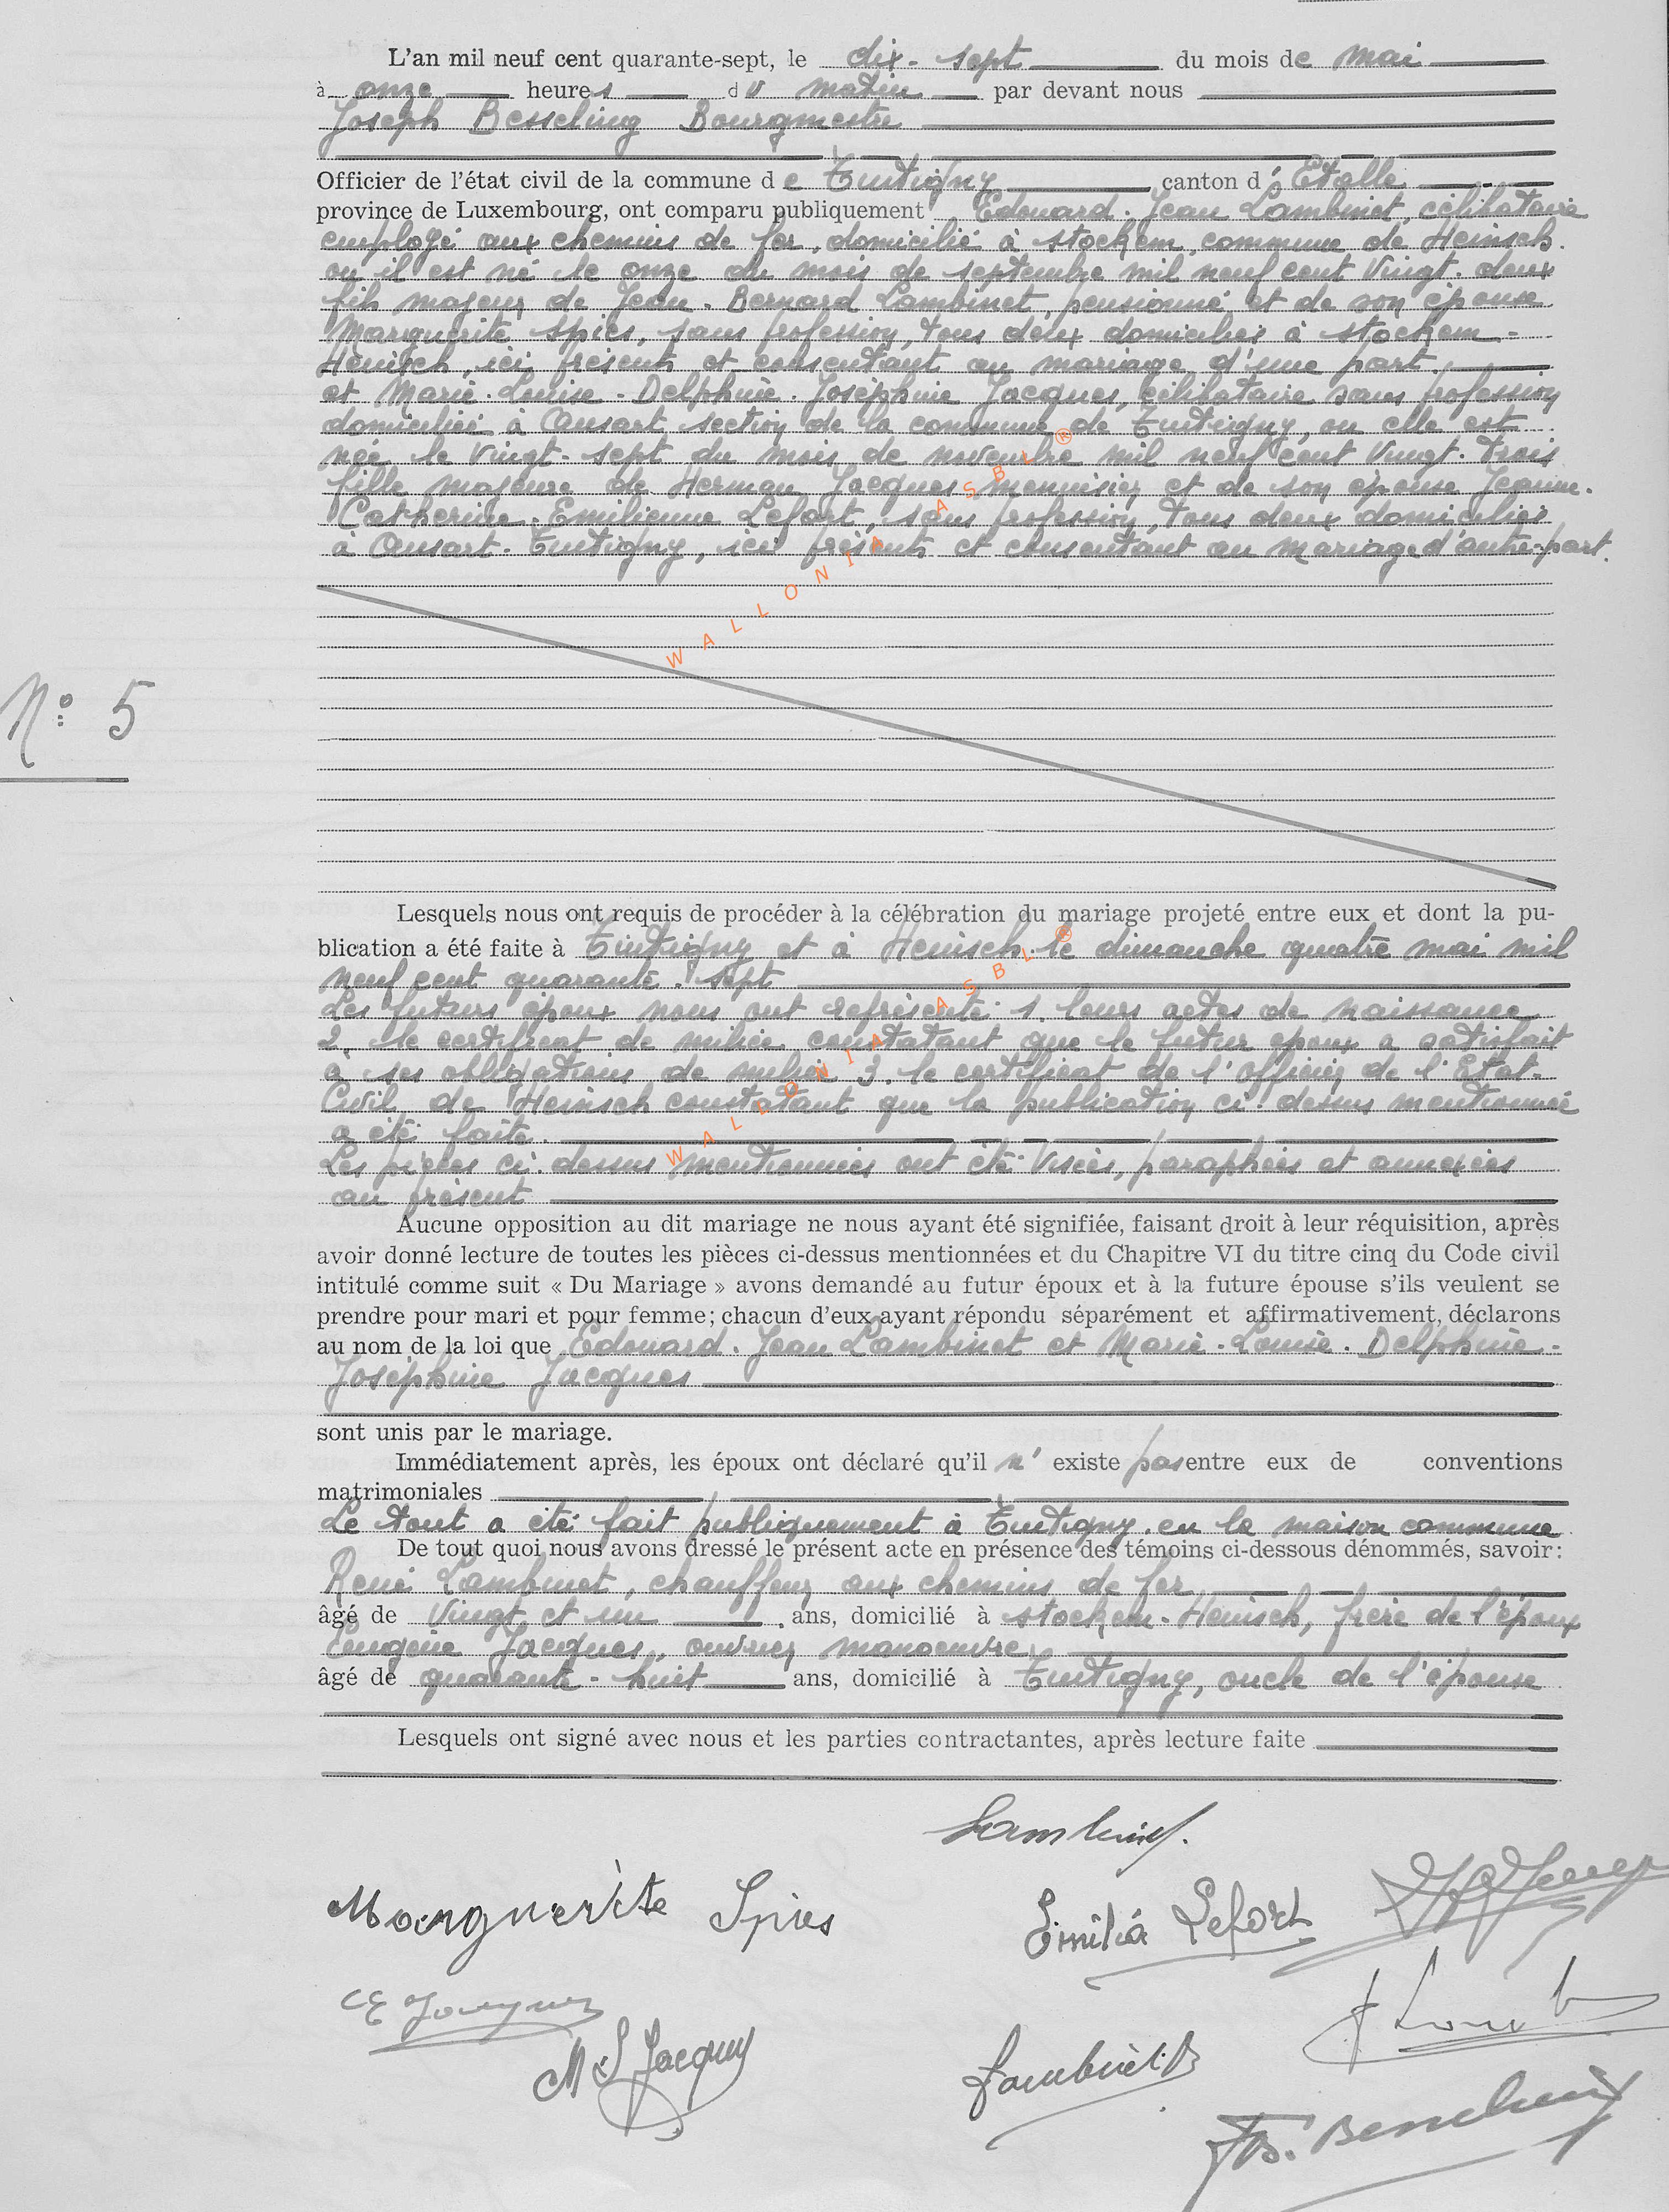 L'an mil neuf cent quarante-sept, le dix-sept du mois de mai
à onze heures du matin par devant nous
Joseph Besseling Bourgmestre
Officier de l'état civil de la commune de Tintigny canton d'Etalle
province de Luxembourg, ont comparu publiquement Edouard-Jean Lambinet, célibataire
employé aux chemins de fer, domicilié à Stockem, commune de Heinsch.
ou il est né le onze du mois de septembre mil neuf cent vingt-deux
fils majeur de Jean-Bernard Lambinet, pensionné et de son épouse
Marguerite Spies, sans profession, tous deux domiciliés à Stockem-
Heinsch, ici présents et consentant au mariage d'une part.
et Marie-Louise-Delphine-Joséphine Jacques, célibataire sans profession
domiciliée à Ansart section de la commune de Tintigny, ou elle est
née le vingt-sept du mois de novembre mil neuf cent vingt-trois
fille majeure de Herman Jacques menuisier et de son épouse Jeanne-
Catherine-Emilienne Lefort, sans profession, tous deux domiciliés
à Ansart-Tintigny, ici présents et consentant au mariage d'autre-part.
WALLONIA ASBL ®
N° 5
Lesquels nous ont requis de procéder à la célébration du mariage projeté entre eux et dont la pu-
blication a été faite à Tintigny et à Heinsch le dimanche quatre mai mil
neuf cent quarante-sept
Les futurs époux nous ont représenté 1. leurs actes de naissance
2. le certificat de milice constatant que le futur époux a satisfait
à ses obligations de milice 3. le certificat de l'officier de l'Etat-
Civil de Heinsch constatant que la publication ci-dessus mentionnée
a été faite.
WALLONIA ASBL ®
Les pièces ci-dessus mentionnées ont été visées, paraphées et annexées
au présent
Aucune opposition au dit mariage ne nous ayant été signifiée, faisant droit à leur réquisition, après
avoir donné lecture de toutes les pièces ci-dessus mentionnées et du Chapitre VI du titre cinq du Code civil
intitulé comme suit « Du Mariage » avons demandé au futur époux et à la future épouse s'ils veulent se
prendre pour mari et pour femme; chacun d'eux ayant répondu séparément et affirmativement, déclarons
au nom de la loi que Edouard-Jean Lambinet et Marie-Louise-Delphine-
Joséphine Jacques
sont unis par le mariage.
Immédiatement après, les époux ont déclaré qu'il n'existe pas entre eux de conventions
matrimoniales
Le tout a été fait publiquement à Tintigny, en la maison commune
De tout quoi nous avons dressé le présent acte en présence des témoins ci-dessous dénommés, savoir:
René Lambinet, chauffeur aux chemins de fer
âgé de vingt et un ans, domicilié à Stockem-Heinsch, frère de l'époux
Eugène Jacques, ouvrier manoeuvre
âgé de quarante-huit ans, domicilié à Tintigny, oncle de l'épouse
Lesquels ont signé avec nous et les parties contractantes, après lecture faite
Lambinet.
Marguerite Spies
Emilia Lefort
E Jacques
M L Jacques
Lambinet. B
Jos. Besseling